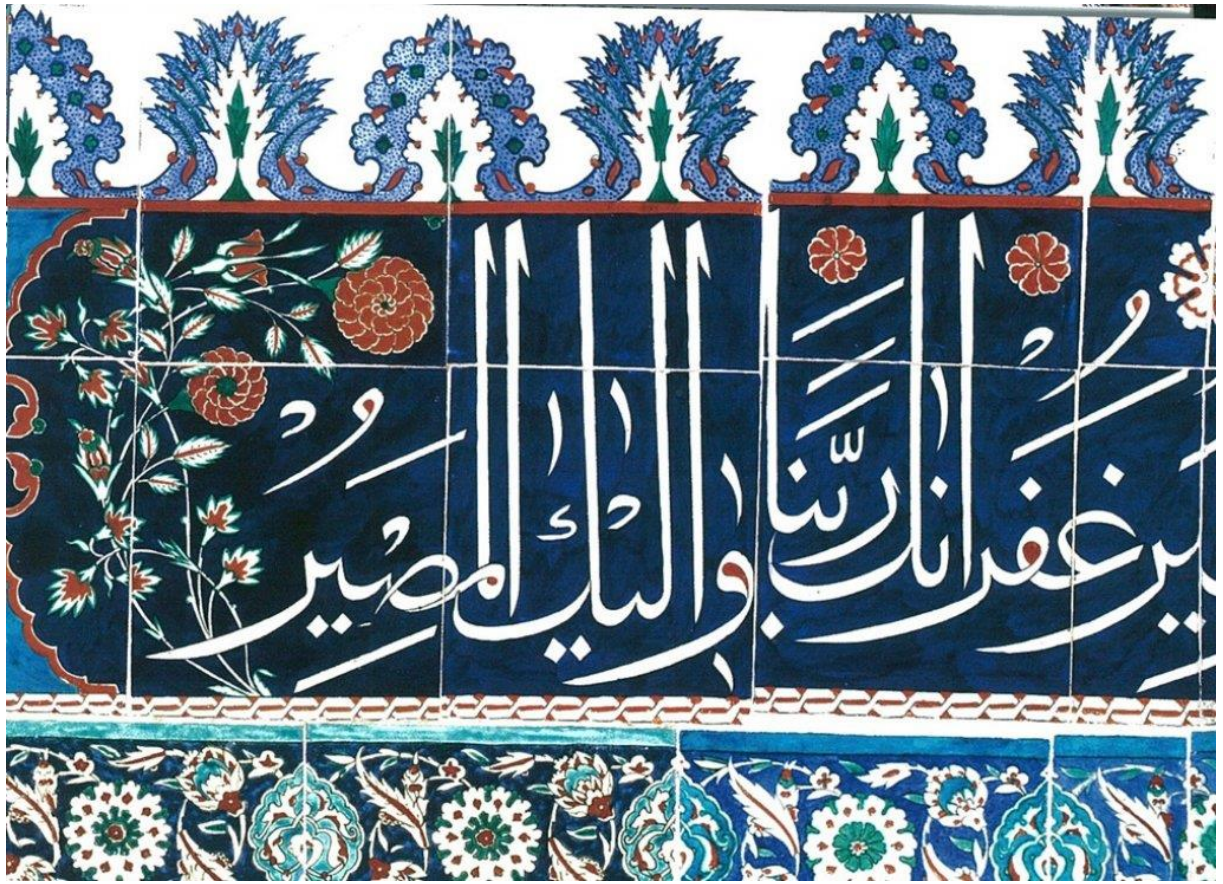 غفرانك ربنا واليك المصير